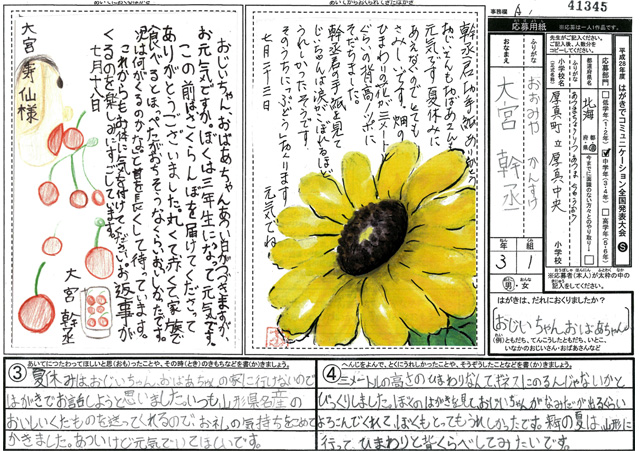 41345
事務欄
応募用紙
※応募は一人1作品です。
平成26年度 はがきでコミュニケーション全国発表大会
先生がご記入ください。
ご記入後、人数分を
コピーしてください。
応募部門
低学年(1・2年)
中学年(3・4年)
高学年(5・6年)
都道府県名
北海
小学校名
厚真町立厚真中央
小学校
ふりがな
おおみや かんすけ
おなまえ
大宮 幹丞
3 年
1 組
男・女
※応募者(本人)が太枠の中の
記入をしてください。
はがきは、だれにおくりましたか?
(おじいちゃん、おばあちゃん)
(例)ともだち、てんこうしたともだち、いとこ、
いなかのおじいさん・おばあさんなど
幹丞君 お手紙ありがとう
おじいちゃんもおばあさんも
元気です。夏休みに
あえないのでとても
さみしいです。畑の
ひまわりの花が三メートル
ぐらいの背高ノッポに
そだちました。
幹丞君の手紙を見て
じいちゃんは涙がこぼれるほど
うれしかったそうです。
七月二十三日
元気でね
おじいちゃん、おばあちゃん、あつい日がつづきますが
お元気ですか。ぼくは三年生になって元気です。
この前はさくらんぼを届けてくださって
ありがとうございました。丸くて赤くて家族で
食べるとほっぺたがおちそうなくらいおいしかったです。
次は何がくるのかなと首を長くして待っています。
これからもお体に気を付けてください。お返事が
くるのを楽しみにすごしています。
七月十八日
大宮 幹丞
大宮 寿仙様
③ あいてにつたわってほしいと思(おも)ったことや、その時(とき)のきもちなどを書(か)きましょう。
夏休みはおじいちゃん、おばあちゃんの家に行けないので
はがきでお話しようと思いました。いつも山形県名産の
おいしいくだものを送ってくれるので、お礼の気持ちをこめて
かきました。あついけど元気でいてほしいです。
④ へんじをよんで、とくにうれしかったことや、そうぞうしたことなどを書(か)きましょう。
三メートルの高さのひまわりなんて
びっくりしました。ぼくのはがきを見ておじいちゃんがなみだが出るくらい
よろこんでくれて、ぼくもとってもうれしかったです。来年の夏は、山形に
行って、ひまわりと背くらべしてみたいです。